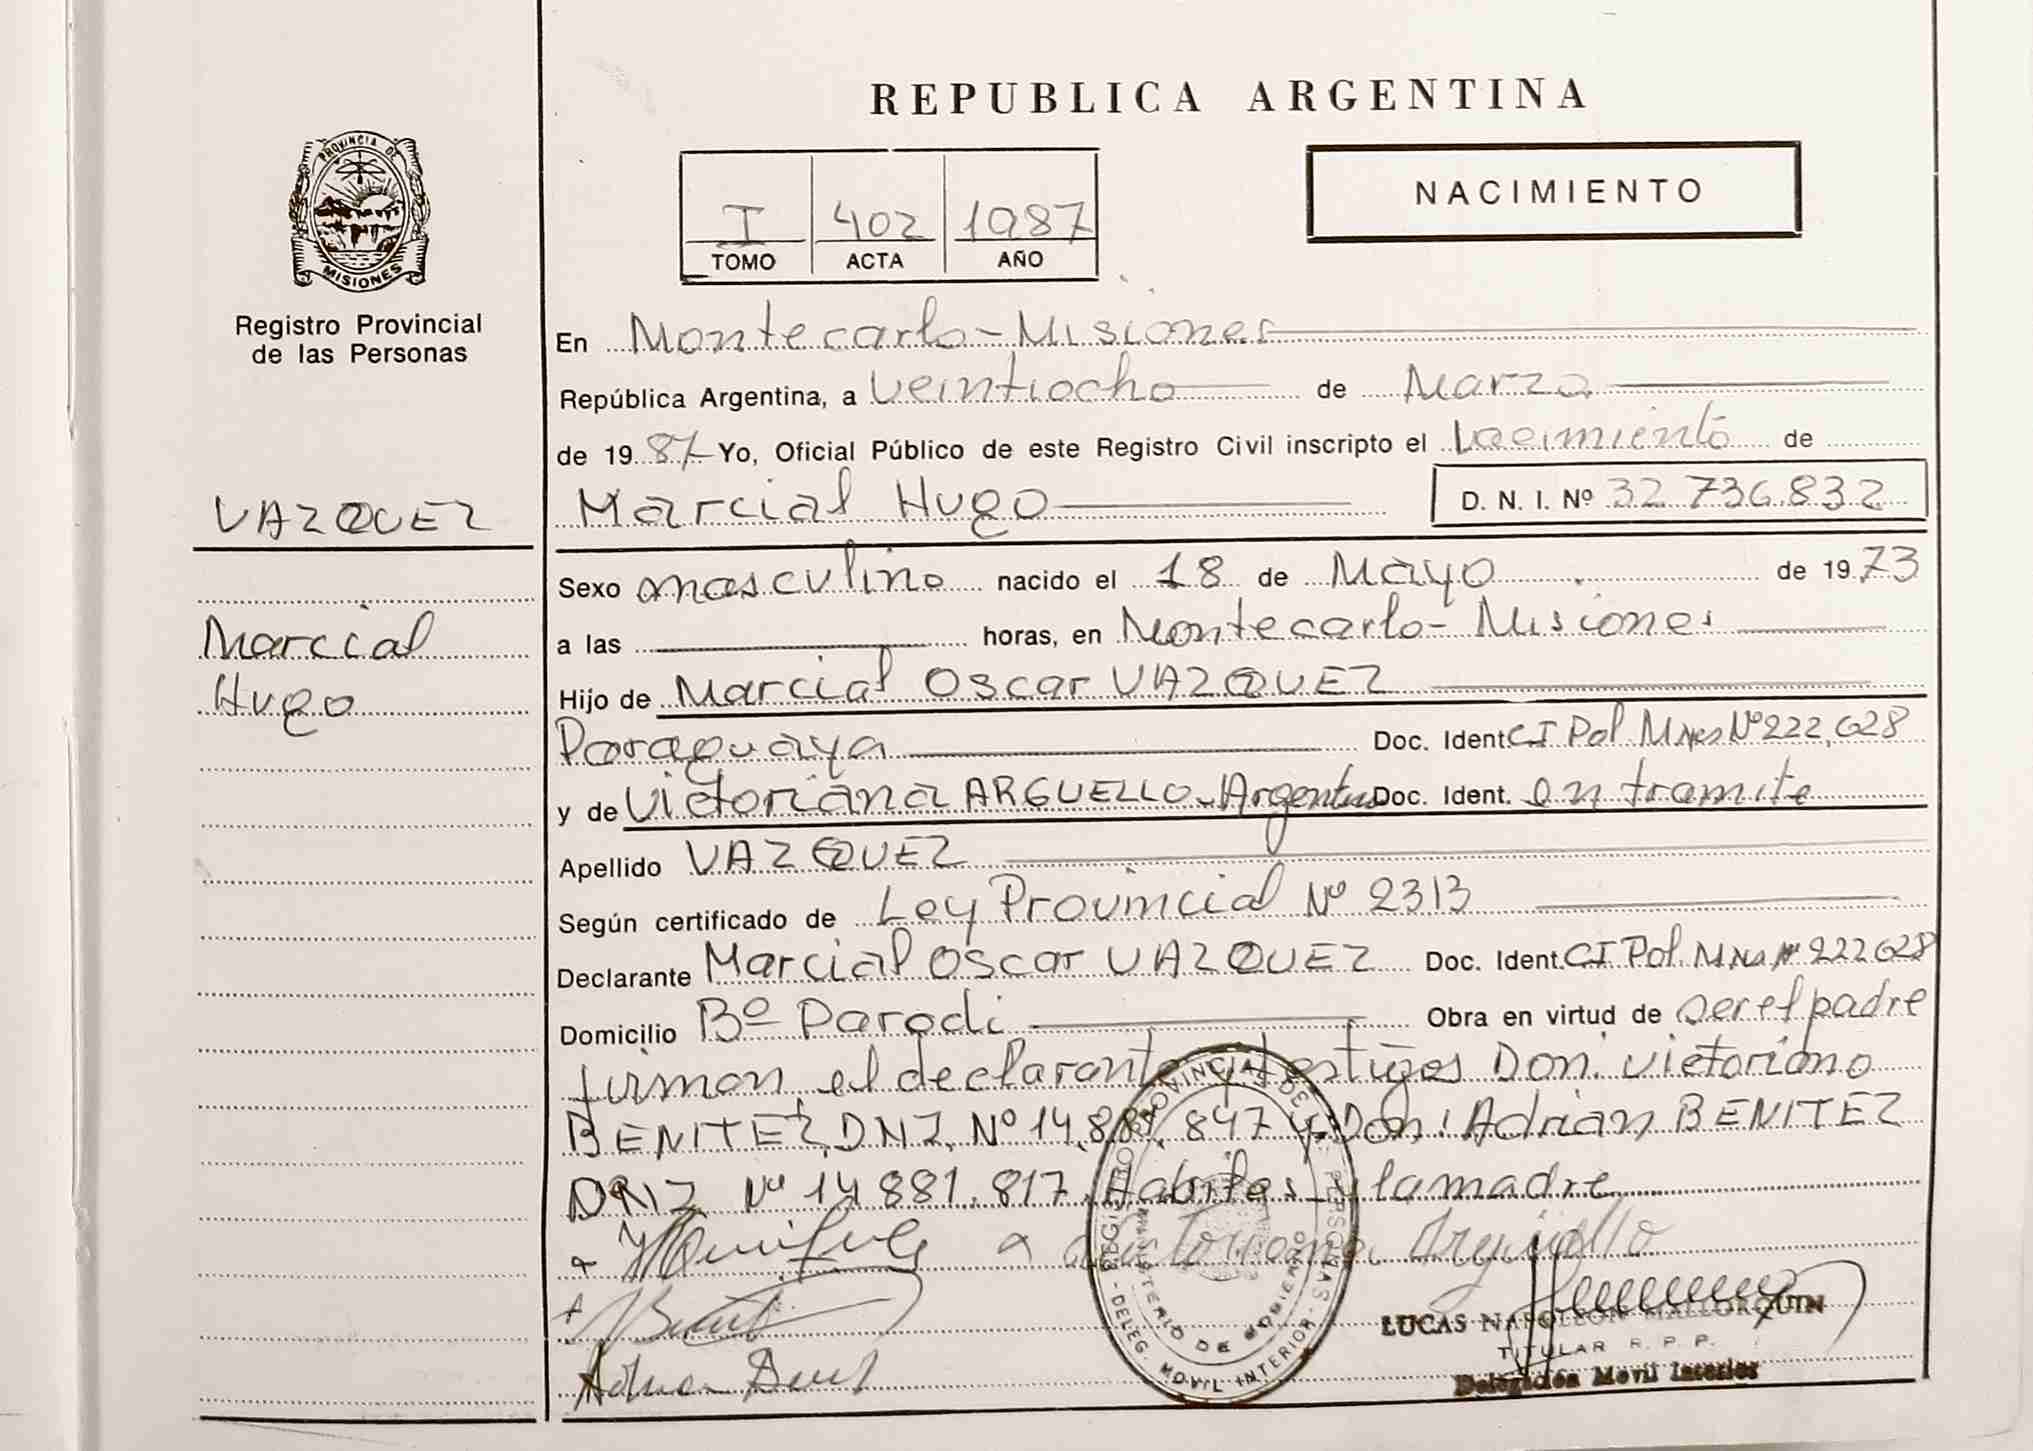 REPUBLICA ARGENTINA
PROVINCIA DE
MISIONES
Registro Provincial
de las Personas
I 402 1987
TOMO ACTA AÑO
NACIMIENTO
En Montecarlo - Misiones
República Argentina, a veintiocho de Marzo
de 1987 Yo, Oficial Público de este Registro Civil inscripto el Nacimiento de
VAZQUEZ
Marcial Hugo D. N. I. Nº 32.736.832
Sexo masculino nacido el 18 de Mayo de 1973
Marcial
Hugo
a las horas, en Montecarlo - Misiones
Hijo de Marcial Oscar VAZQUEZ
Paraguaya Doc. Ident. CI Pol. Mnes Nº 222.628
y de Victoriana ARGUELLO - Argentina Doc. Ident. en tramite
Apellido VAZQUEZ
Según certificado de Ley Provincial Nº 2313
Declarante Marcial Oscar VAZQUEZ Doc. Ident. CI Pol. Mnes Nº 222628
Domicilio Bº Parodi Obra en virtud de ser el padre
firman el declarante, testigos Don: Victoriano
BENITEZ, DNI. Nº 14.881.847 y Don: Adrian BENITEZ
DNI. Nº 14.881.817. Habiles y la madre
Victoriana Arguello
REGISTRO PROVINCIAL DE LAS PERSONAS
MINISTERIO DE GOBIERNO
- DELEG. MOVIL INTERIOR -
LUCAS NAPOLEON MALLORQUIN
TITULAR R. P. P.
Delegación Movil Interior